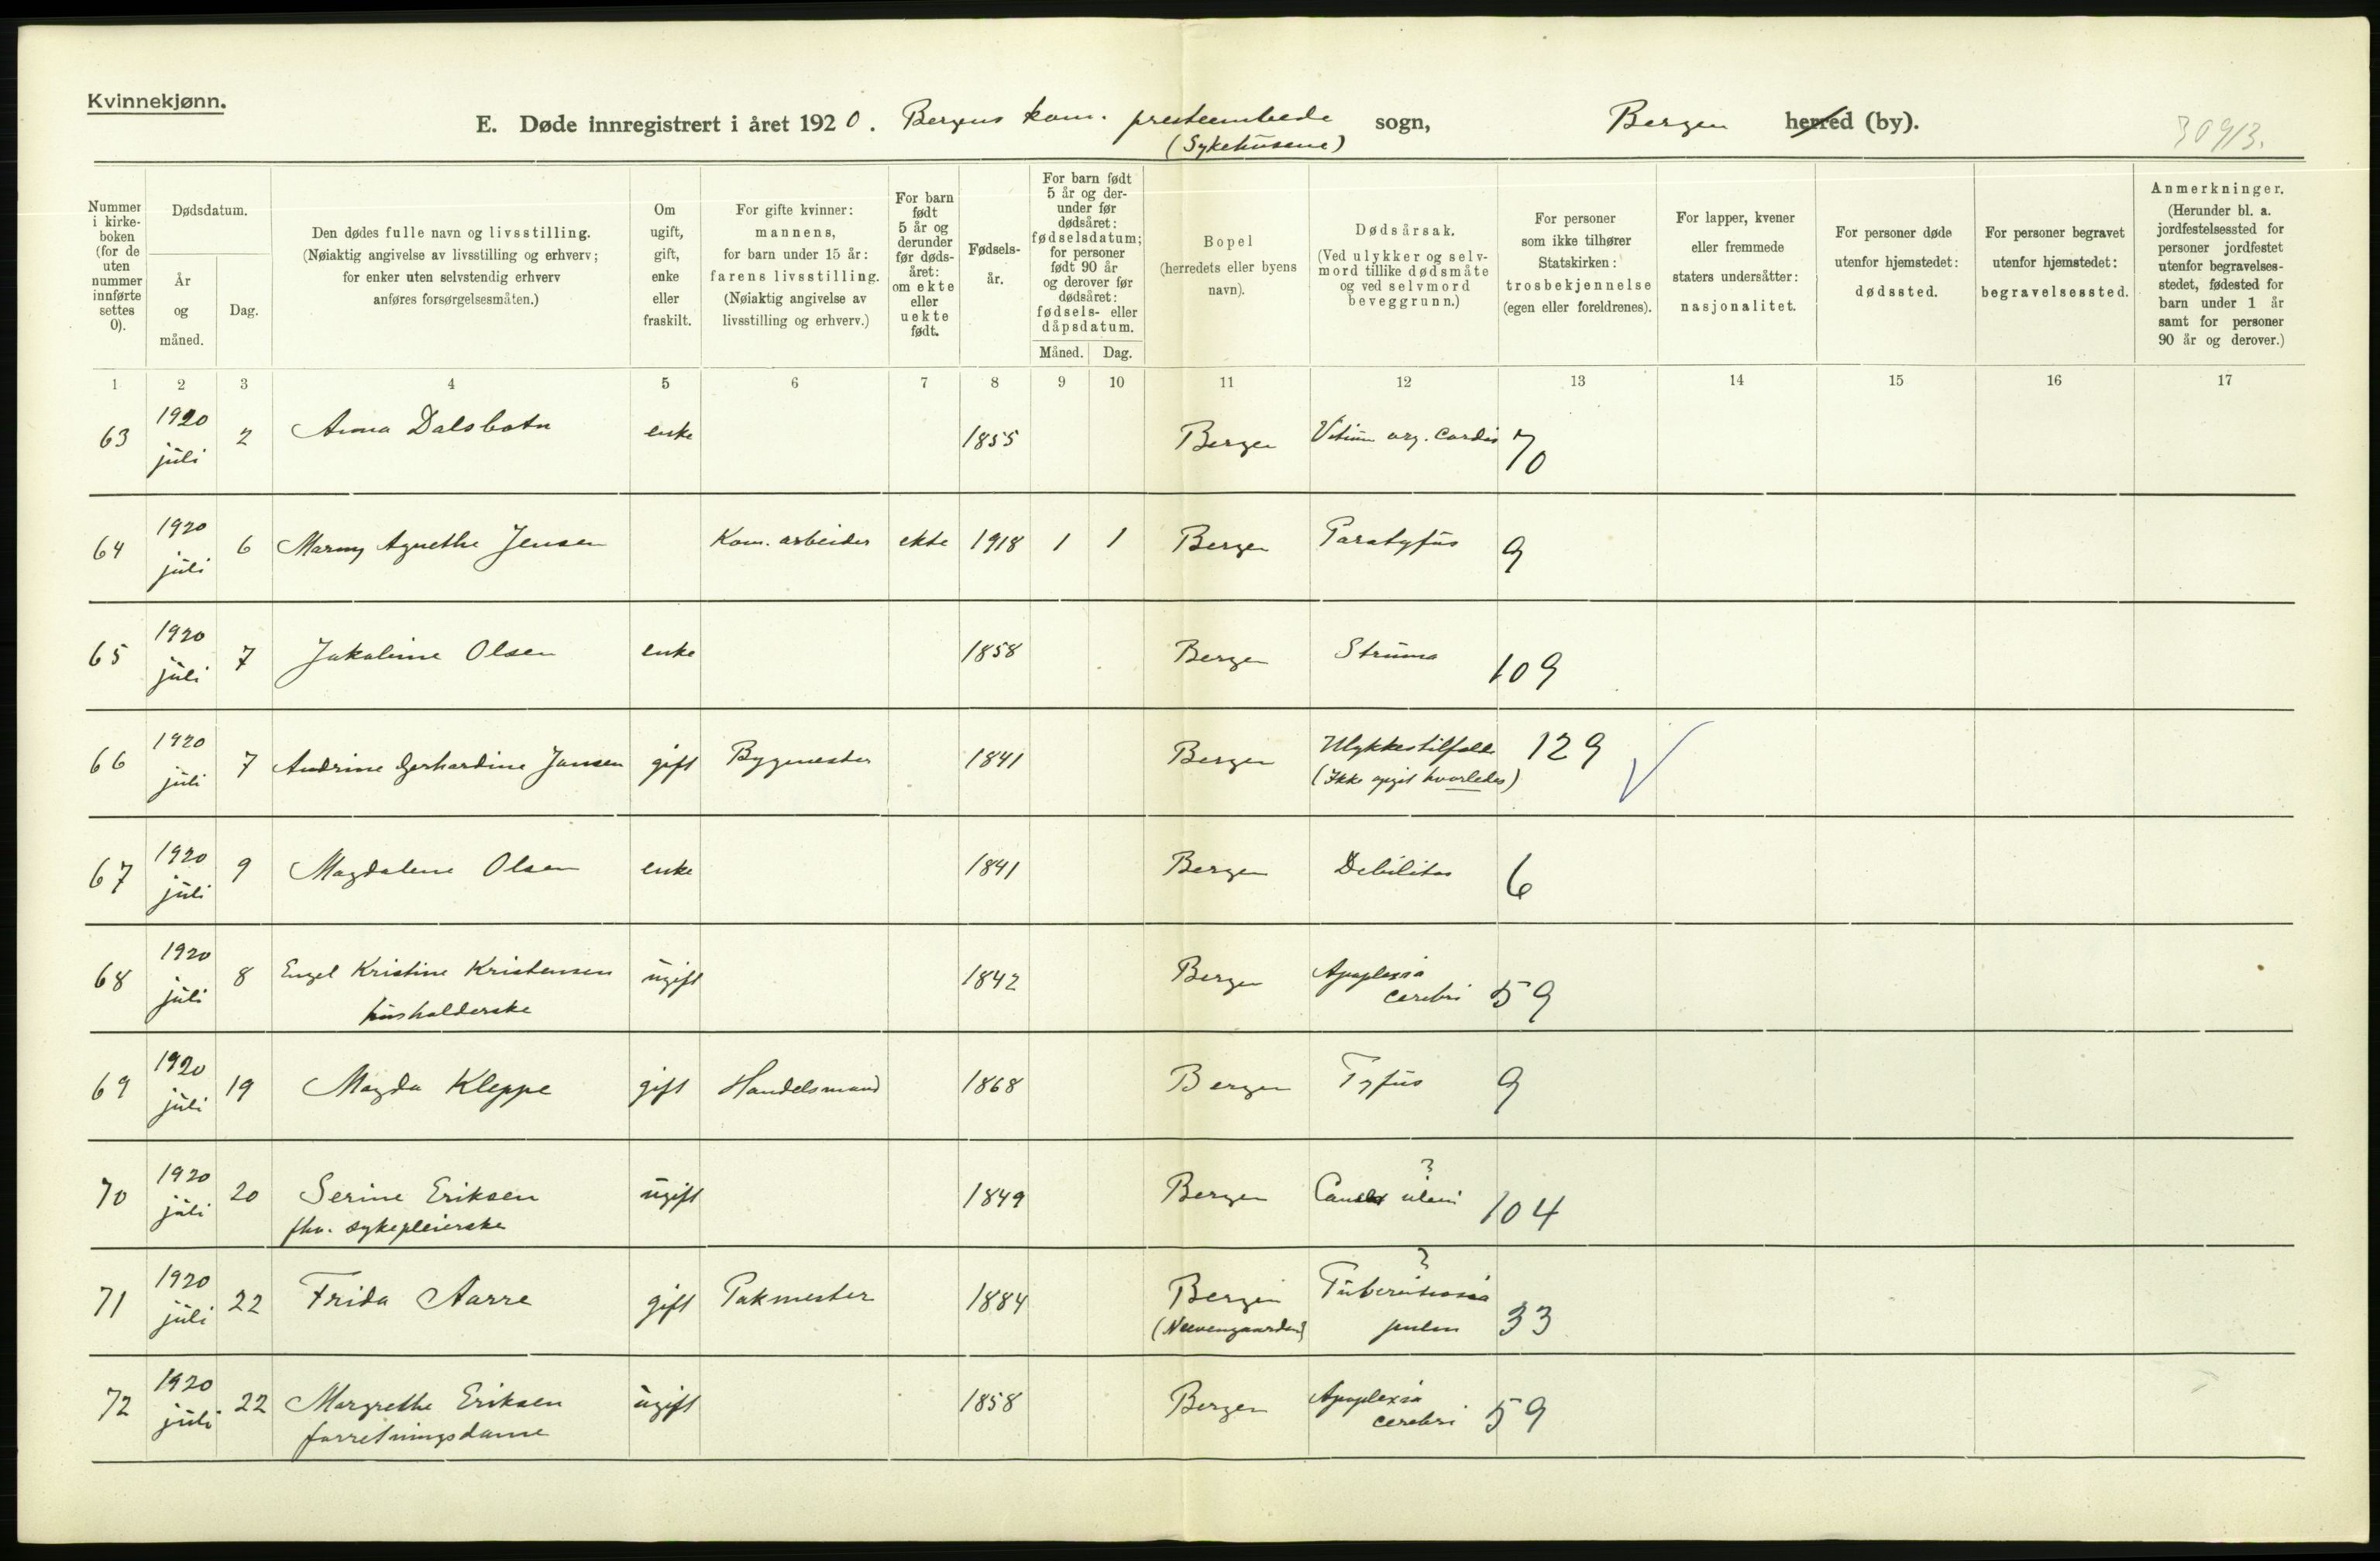 Kvinnekjønn.
E. Døde innregistrert i året 1920. Bergens kom. presteembede sogn, Bergen herred (by).
(Sykehusene)
30913.
Nummer i kirke-boken (for de uten nummer innførte settes 0).
Dødsdatum.
År og måned.
Dag.
Den dødes fulle navn og livsstilling.
(Nøiaktig angivelse av livsstilling og erhverv;
for enker uten selvstendig erhverv
anføres forsørgelsesmåten.)
Om ugift, gift, enke eller fraskilt.
For gifte kvinner:
mannens,
for barn under 15 år:
farens livsstilling.
(Nøiaktig angivelse av
livsstilling og erhverv.)
For barn født 5 år og derunder før døds-året: om ekte eller uekte født.
Fødsels-år.
For barn født 5 år og der-under før dødsåret: fødselsdatum; for personer født 90 år og derover før dødsåret: fødsels- eller dåpsdatum.
Måned. Dag.
Bopel
(herredets eller byens
navn).
Dødsårsak.
(Ved ulykker og selv-
mord tillike dødsmåte
og ved selvmord
beveggrunn.)
For personer
som ikke tilhører
Statskirken:
trosbekjennelse
(egen eller foreldrenes).
For lapper, kvener
eller fremmede
staters undersåtter:
nasjonalitet.
For personer døde
utenfor hjemstedet:
dødssted.
For personer begravet
utenfor hjemstedet:
begravelsessted.
Anmerkninger.
(Herunder bl. a.
jordfestelsessted for
personer jordfestet
utenfor begravelses-
stedet, fødested for
barn under 1 år
samt for personer
90 år og derover.)
1 2 3 4 5 6 7 8 9 10 11 12 13 14 15 16 17
63 1920 juli 2 Anna Dalsbotn enke 1855 Bergen Vitium org. cordis 70
64 1920 juli 6 Marny Agnethe Jensen Kom. arbeider ekte 1918 1 1 Bergen Paratyfus 9
65 1920 juli 7 Jakobine Olsen enke 1858 Bergen Struma 109
66 1920 juli 7 Andrine Gerhardine Jansen gift Bygmester 1841 Bergen Ulykkestilfelde 129
(Ikke opgit hvorledes)
67 1920 juli 9 Magdalene Olsen enke 1841 Bergen Debilitas 6
68 1920 juli 8 Engel Kristine Kristensen ugift 1842 Bergen Apoplexia cerebri 59
husholderske
69 1920 juli 19 Magda Kleppe gift Handelsmand 1868 Bergen Tyfus 9
70 1920 juli 20 Serine Eriksen ugift 1849 Bergen ? 104
fhv. sykepleierske
71 1920 juli 22 Frida Aarre gift Pakmester 1884 Bergen ? pulm 33
(Neevengaarden)
72 1920 juli 22 Margrethe Eriksen ugift 1858 Bergen Apoplexia cerebri 59
forretningsdame